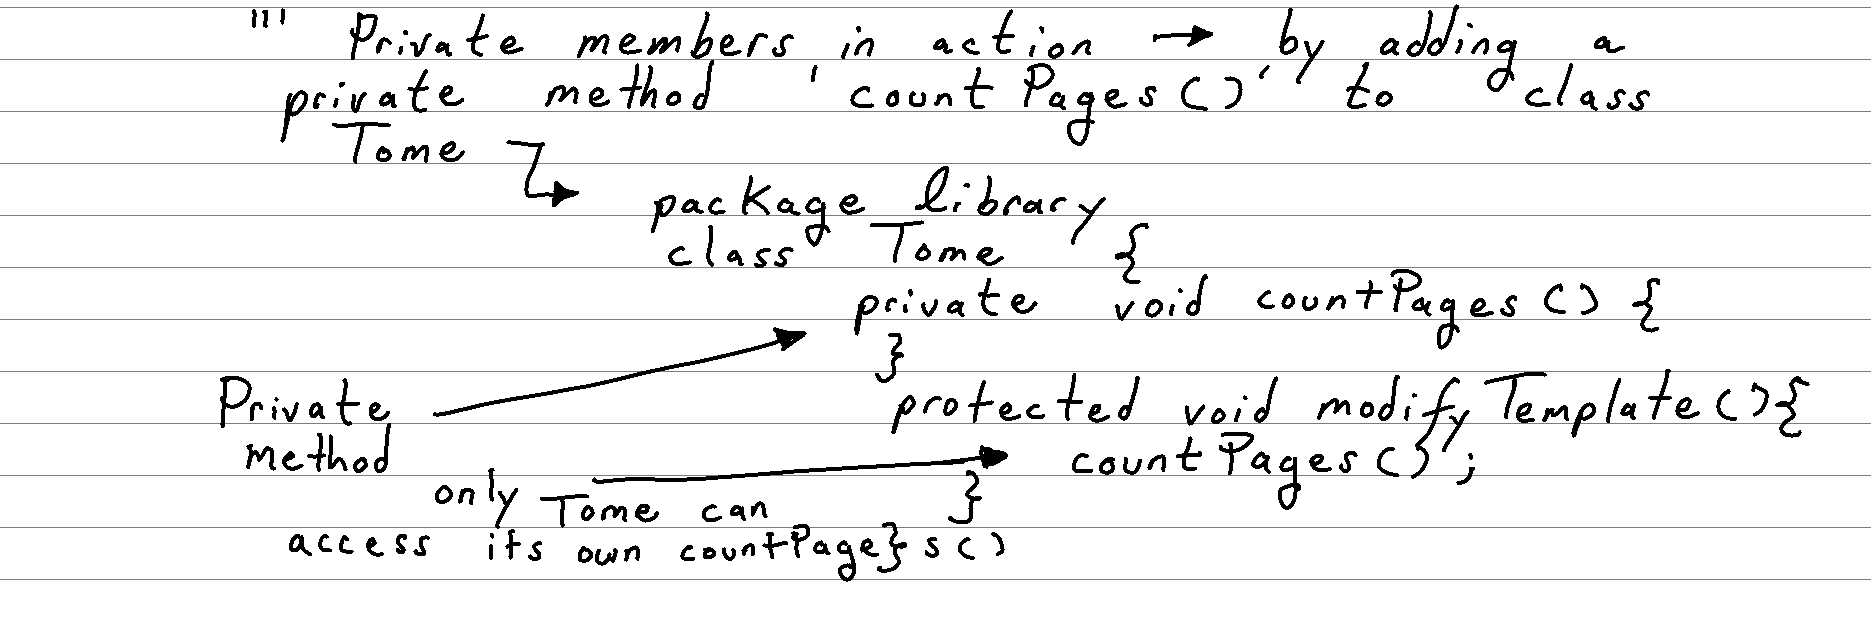 "" Private members in action → by adding a
private method 'countPages()' to class
Tome
package library
class Tome {
private void countPages() {
}
Private method
protected void modifyTemplate(){
countPages();
only Tome can
}
access its own countPage}s()